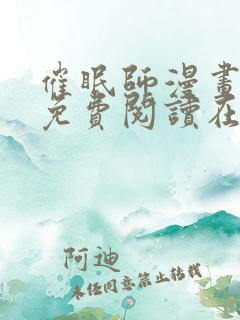 催眠師漫畫
免費閱讀在
阿迪
未經同意禁止轉載